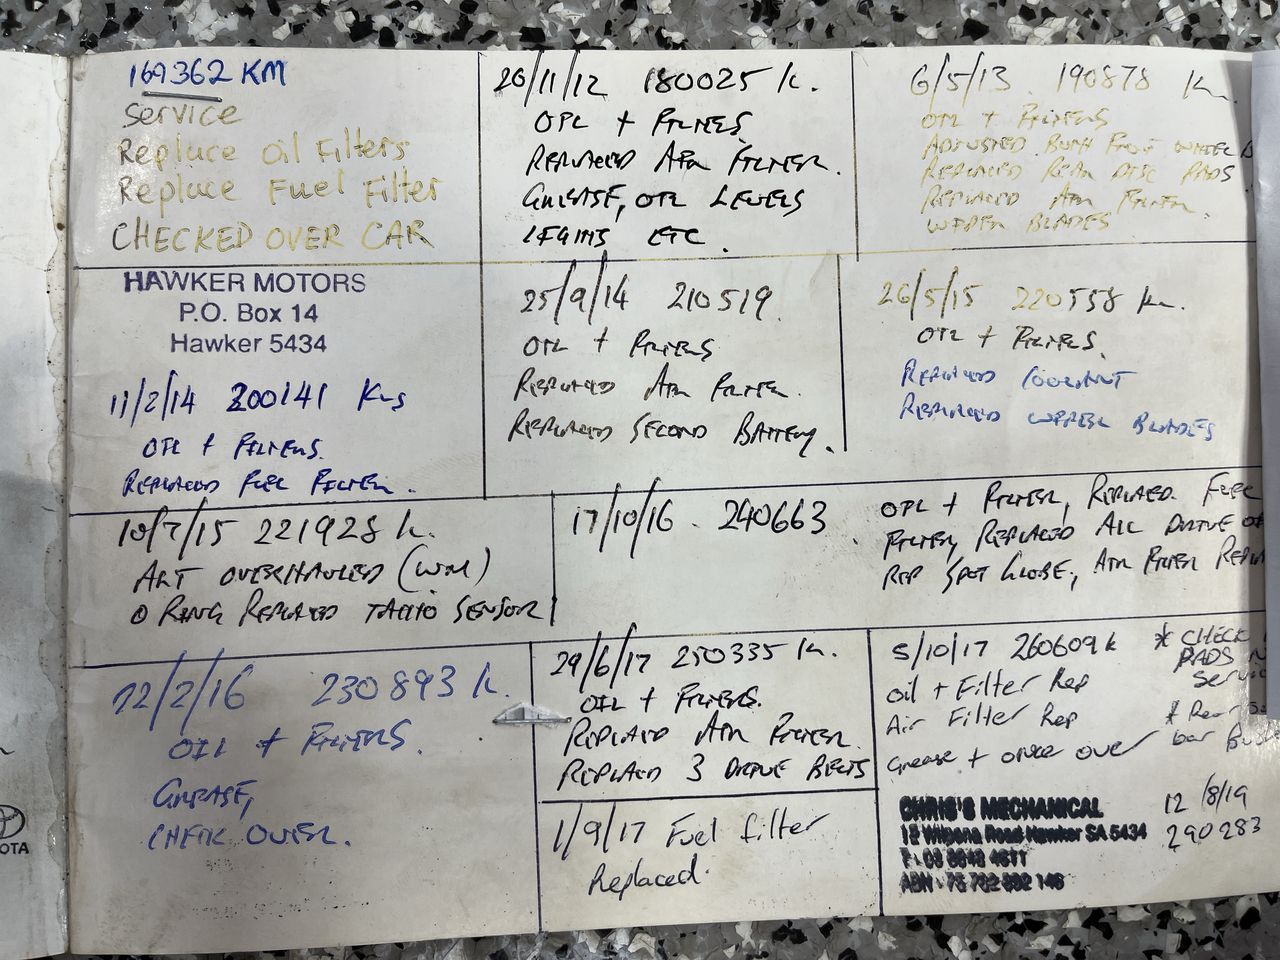 169362 KM
Service
Replace Oil Filters
Replace Fuel Filter
CHECKED OVER CAR
HAWKER MOTORS
P.O. Box 14
Hawker 5434
20/11/12 180025 K.
OIL + FILTERS
REPLACED AIR FILTER.
GREASE, OIL LEVELS
LIGHTS ETC.
6/5/13. 190878 Km.
OIL + FILTERS
ADJUSTED BOTH FRONT WHEEL
REPLACED REAR DISC PADS
REPLACED AIR FILTER.
WIPER BLADES
11/2/14 200141 Kms
OIL + FILTERS.
REPLACED FUEL FILTER.
25/9/14 210519.
OIL + FILTERS
REPLACED AIR FILTER.
REPLACED SECOND BATTERY.
26/5/15 220558 Km.
OIL + FILTERS.
REPLACED COOLANT
REPLACED WIPER BLADES
10/7/15 221928 K.
ALT OVERHAULED
O RING REPLACED TACHO SENSOR
17/10/16. 240663
OIL + FILTER, REPLACED FUEL
FILTER, REPLACED ALL DRIVE
REP SPOT GLOBE, AIR FILTER
22/2/16 230893 K.
OIL + FILTERS.
GREASE,
CHECK OVER.
29/6/17 250335 K.
OIL + FILTERS.
REPLACED AIR FILTER.
REPLACED 3 DRIVE BELTS
1/9/17 Fuel filter
Replaced.
5/10/17 260609k
Oil + Filter Rep
Air Filter Rep
Grease + once over
* CHECK
PADS
* Rear
bar
CHRIS'S MECHANICAL
12 Wilpena Road Hawker SA 5434
12/8/19
290283
OTA